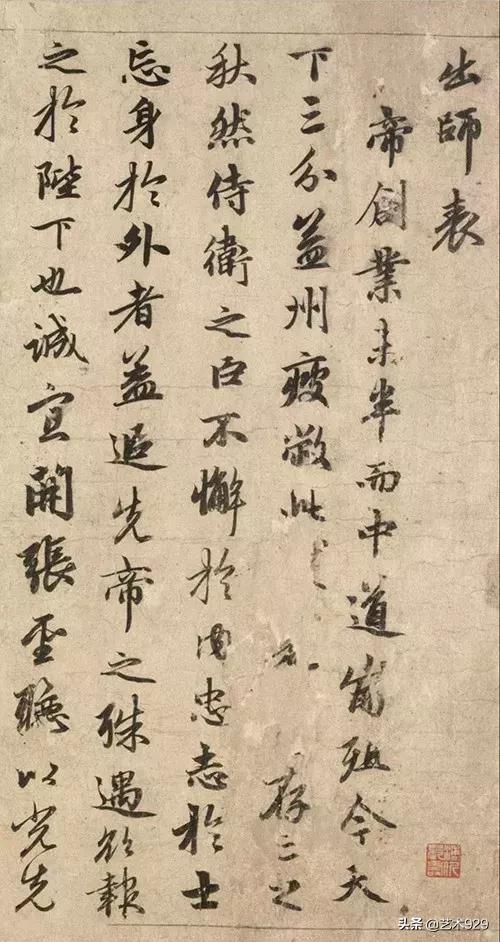 出師表
帝創業未半而中道崩殂今天
下三分益州疲敝此存亡之
秋然侍衛之臣不懈於内忠志於士
忘身於外者蓋追先帝之殊遇欲報
之於陛下也誠宜開張聖聽以光先
头条 @艺术929